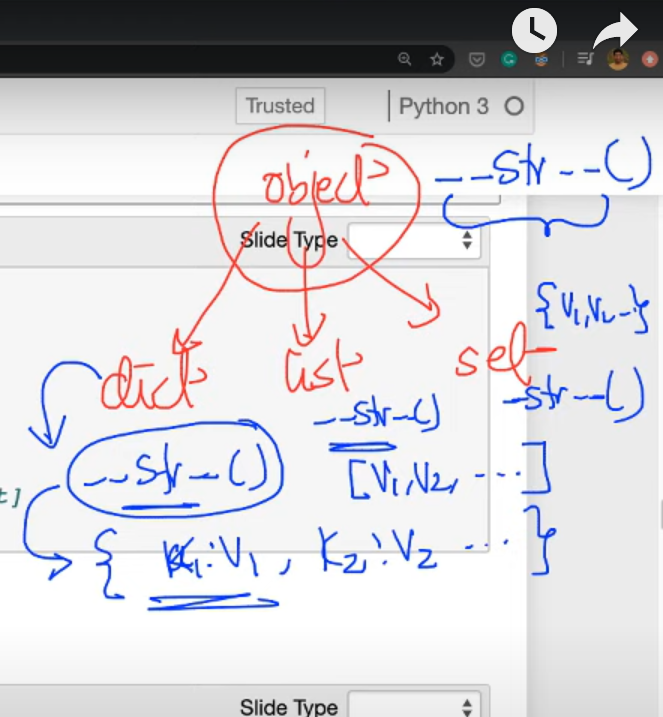 Trusted
Python 3
object
__str__()
Slide Type
{V1,V2 -}
dict
list
set
__str__()
__str__()
__str__()
[V1,V2, ...]
t]
{ K1:V1, K2:V2 ... }
Slide Type